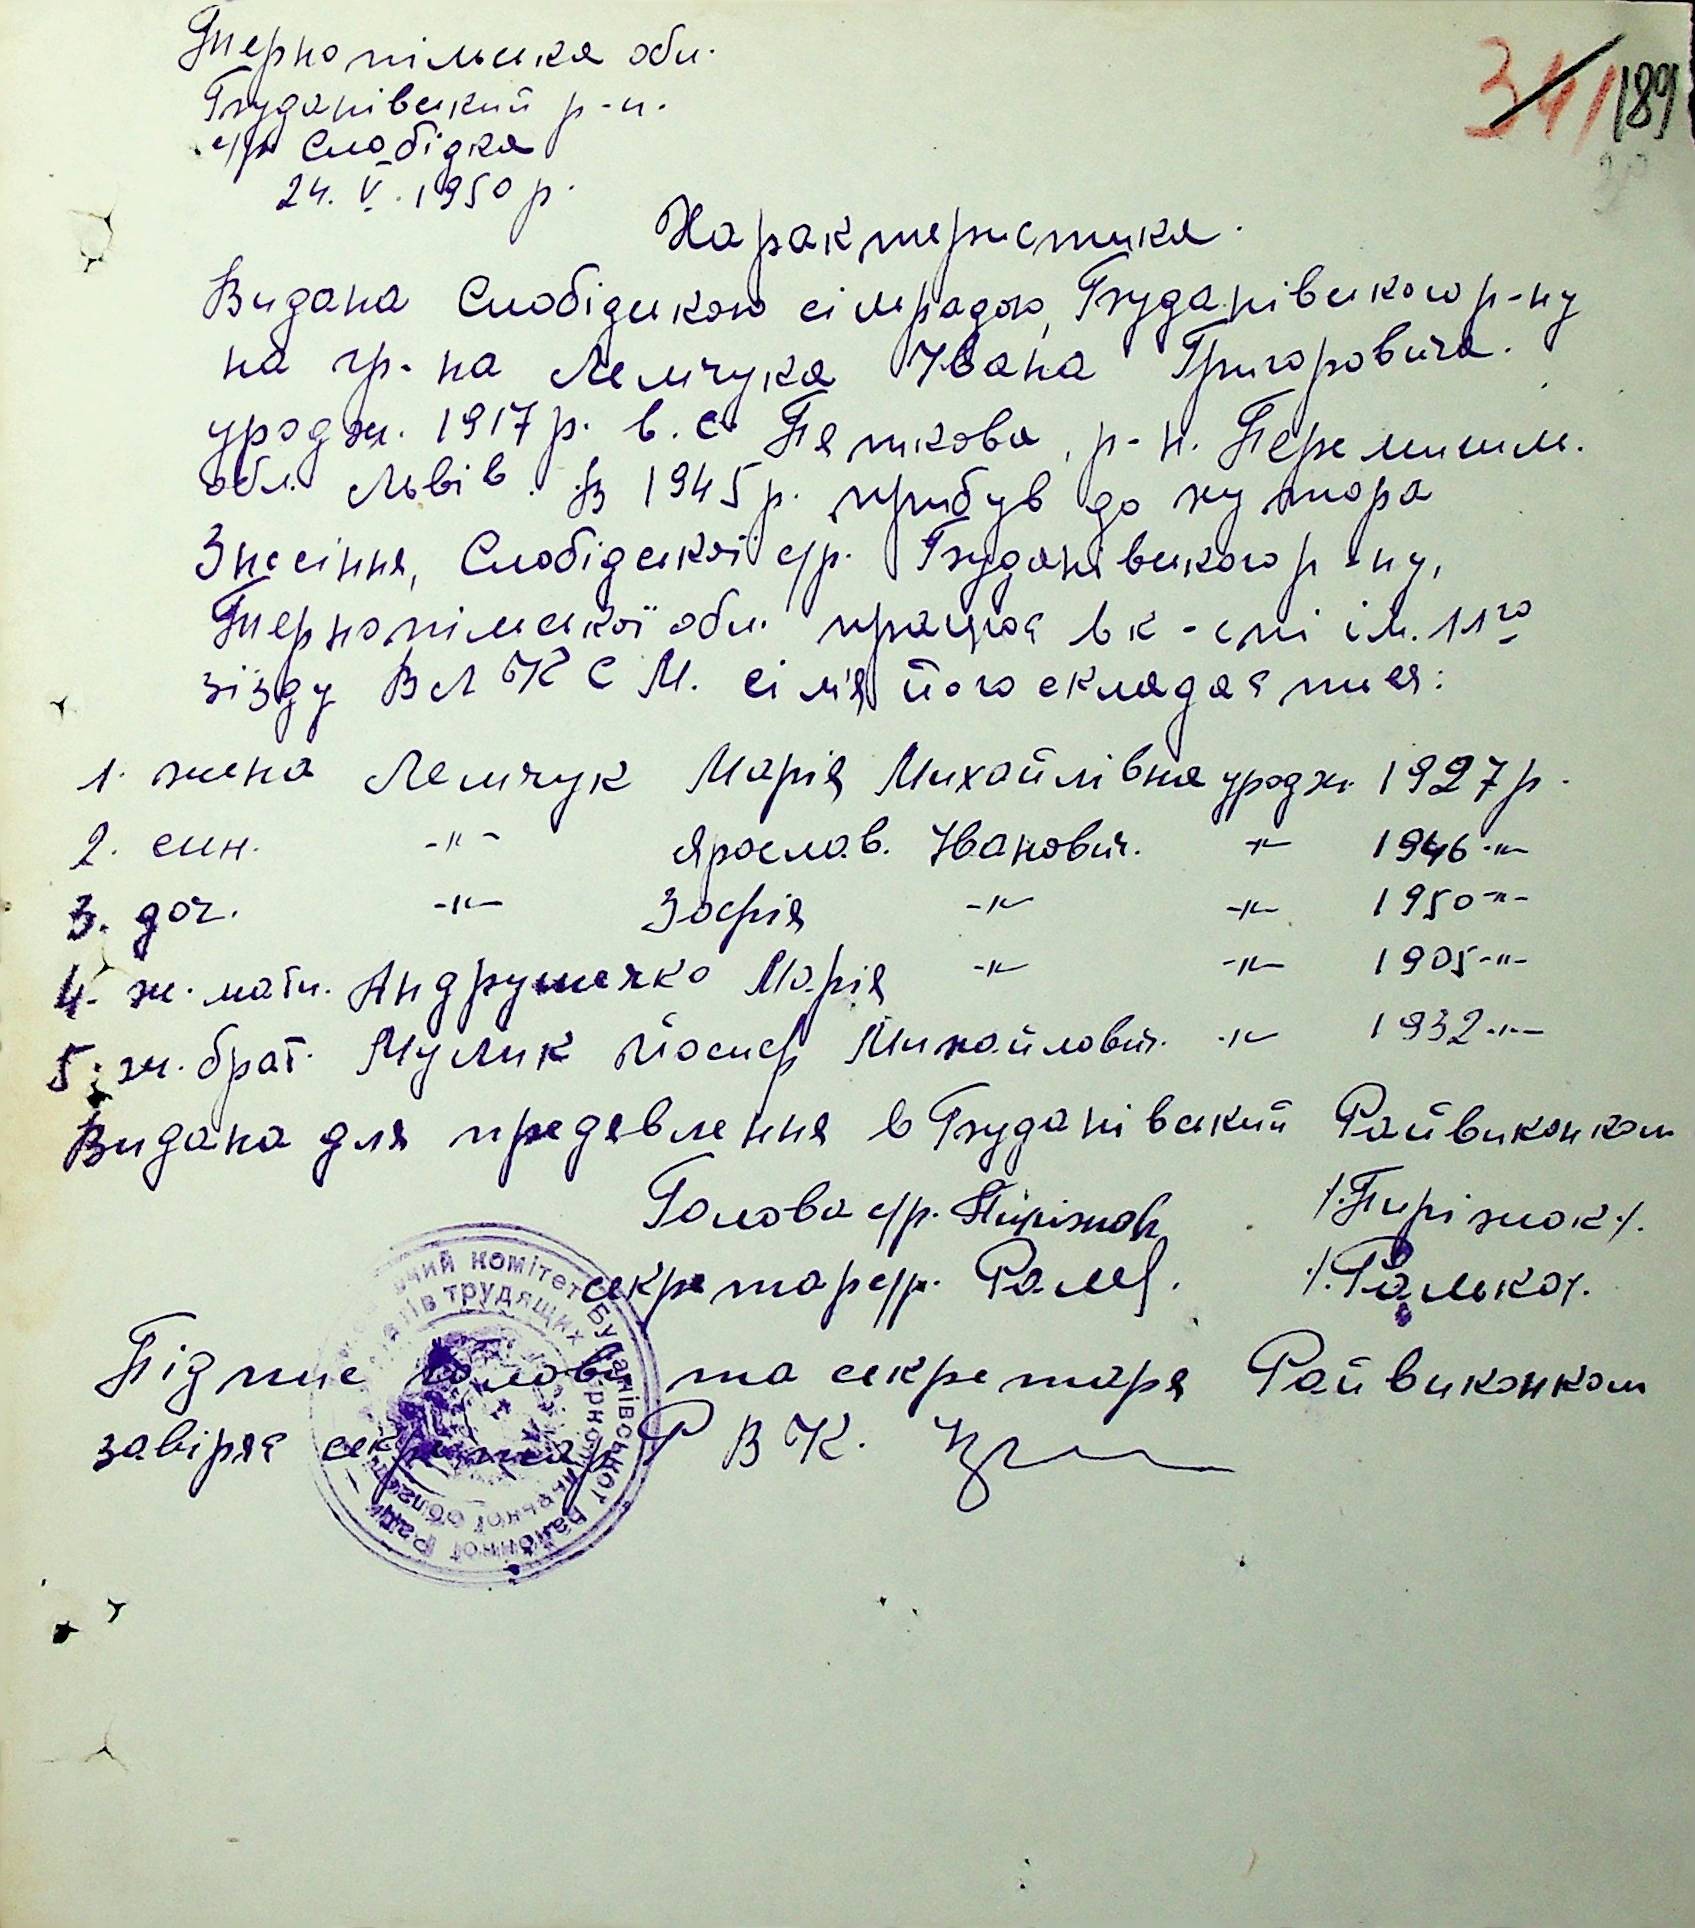 Тернопільська обл.
341 189
Будапівський р-н.
с/р Слобідка
24. V. 1950 р.
Характеристика.
Видана Слобідською сільрадою, Буданівського р-ну
на гр-на Лемчука Івана Григоровича.
уродж. 1917 р. в. с. Пяткова, р-н. Перемишль.
обл. Львів. В 1945 р. прибув до хутора
Знесіння, Слобідської с/р. Буданівського р-ну,
Тернопільської обл. працює в к-спі ім. 11го
зїзду ВЛКСМ. сім'я його складається:
1. жена Лемчук Марія Михайлівна уродж. 1927 р.
2. син. -"- Ярослав. Іванович. -"- 1946 -"-
3. доч. -"- Зофія -"- -"- 1950 -"-
4. ж. мати. Андрушечко Марія -"- -"- 1905 -"-
5. ж. брат. Мулик Йосиф Михайлович. -"- 1932 -"-
Видана для предявлення в Буданівський Райвиконком
Голова с/р. Пиріжок /.Пиріжок./.
секретар с/р. /.Ралько/.
Підпис голови та секретаря Райвиконком
завіряє секретар Р В К.
комітет Буданівської районної Ради
трудящих Тернопільської області